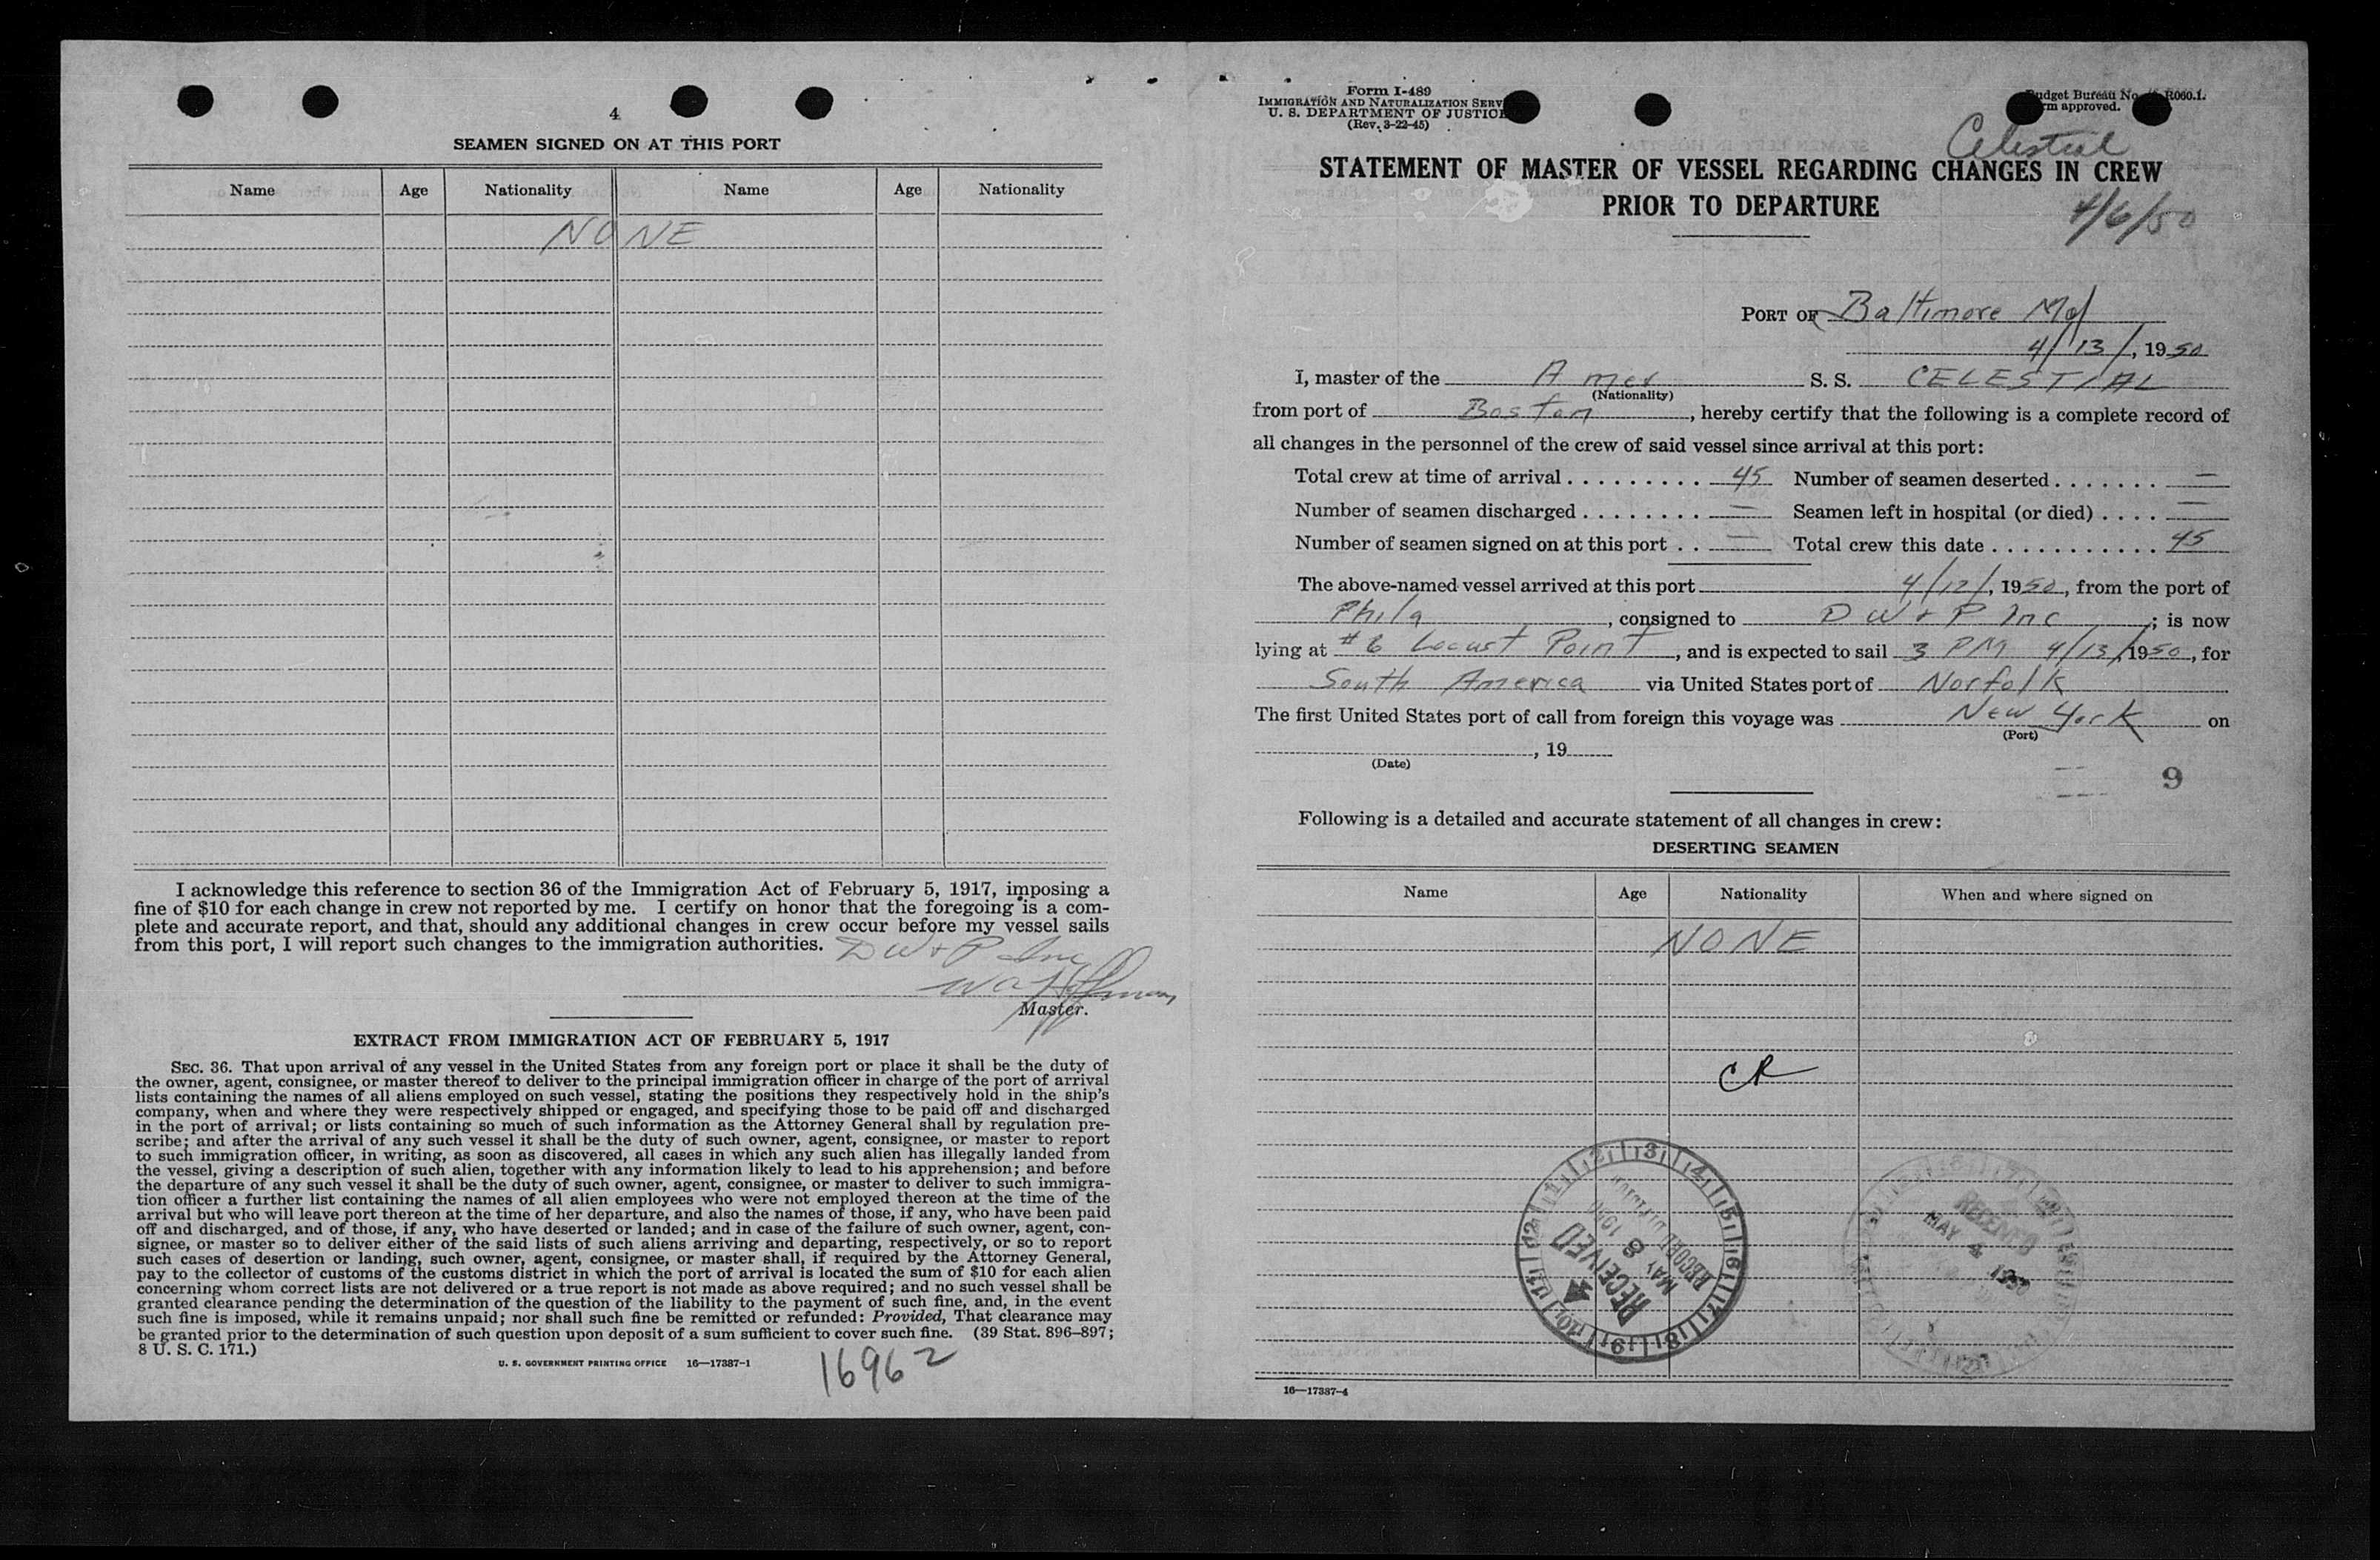 4
SEAMEN SIGNED ON AT THIS PORT
Name Age Nationality Name Age Nationality
NONE
I acknowledge this reference to section 36 of the Immigration Act of February 5, 1917, imposing a
fine of $10 for each change in crew not reported by me. I certify on honor that the foregoing is a com-
plete and accurate report, and that, should any additional changes in crew occur before my vessel sails
from this port, I will report such changes to the immigration authorities.
D W + P Inc
W A Hoffman
Master.
EXTRACT FROM IMMIGRATION ACT OF FEBRUARY 5, 1917
SEC. 36. That upon arrival of any vessel in the United States from any foreign port or place it shall be the duty of
the owner, agent, consignee, or master thereof to deliver to the principal immigration officer in charge of the port of arrival
lists containing the names of all aliens employed on such vessel, stating the positions they respectively hold in the ship's
company, when and where they were respectively shipped or engaged, and specifying those to be paid off and discharged
in the port of arrival; or lists containing so much of such information as the Attorney General shall by regulation pre-
scribe; and after the arrival of any such vessel it shall be the duty of such owner, agent, consignee, or master to report
to such immigration officer, in writing, as soon as discovered, all cases in which any such alien has illegally landed from
the vessel, giving a description of such alien, together with any information likely to lead to his apprehension; and before
the departure of any such vessel it shall be the duty of such owner, agent, consignee, or master to deliver to such immigra-
tion officer a further list containing the names of all alien employees who were not employed thereon at the time of the
arrival but who will leave port thereon at the time of her departure, and also the names of those, if any, who have been paid
off and discharged, and of those, if any, who have deserted or landed; and in case of the failure of such owner, agent, con-
signee, or master so to deliver either of the said lists of such aliens arriving and departing, respectively, or so to report
such cases of desertion or landing, such owner, agent, consignee, or master shall, if required by the Attorney General,
pay to the collector of customs of the customs district in which the port of arrival is located the sum of $10 for each alien
concerning whom correct lists are not delivered or a true report is not made as above required; and no such vessel shall be
granted clearance pending the determination of the question of the liability to the payment of such fine, and, in the event
such fine is imposed, while it remains unpaid; nor shall such fine be remitted or refunded: Provided, That clearance may
be granted prior to the determination of such question upon deposit of a sum sufficient to cover such fine. (39 Stat. 896–897;
8 U. S. C. 171.)
U. S. GOVERNMENT PRINTING OFFICE 16—17387-1
16962
Form I-489
IMMIGRATION AND NATURALIZATION SERV
U. S. DEPARTMENT OF JUSTICE
(Rev. 3-22-45)
Budget Bureau No. R060.1.
rm approved.
Celestial
STATEMENT OF MASTER OF VESSEL REGARDING CHANGES IN CREW
PRIOR TO DEPARTURE
4/6/50
PORT OF Baltimore Md
4/13/, 1950
I, master of the Amer S. S. CELESTIAL
(Nationality)
from port of Boston, hereby certify that the following is a complete record of
all changes in the personnel of the crew of said vessel since arrival at this port:
Total crew at time of arrival . . . . . . . . . 45 Number of seamen deserted . . . . . . . —
Number of seamen discharged . . . . . . . . — Seamen left in hospital (or died) . . . . —
Number of seamen signed on at this port . . — Total crew this date . . . . . . . . . . . 45
The above-named vessel arrived at this port 4/12/, 1950, from the port of
Phila, consigned to D W + P Inc; is now
lying at #6 Locust Point, and is expected to sail 3 PM 4/13/1950, for
South America via United States port of Norfolk
The first United States port of call from foreign this voyage was New York on
(Port)
, 19
(Date)
9
Following is a detailed and accurate statement of all changes in crew:
DESERTING SEAMEN
Name Age Nationality When and where signed on
NONE
CR
RECEIVED
MAY 8 1950
RECORD
RECEIVED
MAY 4 1950
16—17387-4